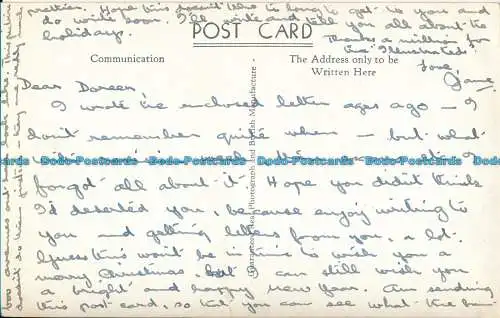 POST CARD
Communication
The Address only to be
Written Here
Genuine Real Photograph and British Manufacture
Dear Doreen,
I wrote the enclosed letter ages ago — I
don't remember quite when — but what
forgot all about it! Hope you didn't think
I'd deserted you, because enjoy writing to
you and getting letters from you, a lot.
Guess this won't be in time to wish you a
merry Christmas, but I can still wish you
a bright and happy New Year. Am sending
this post card, so that you can see what the
look like. This picture
doesn't do them justice — they are really much
prettier. Hope this doesn't take too long to get to you and
do write soon. I'll write and tell you all about the
holidays.
Thanks a million for
the "Illustrateds".
Love,
Jane.
Dodo-Postcards Dodo-Postcards Dodo-Postcards Dodo-Postcards Dodo-Postcards Dodo-Postcards